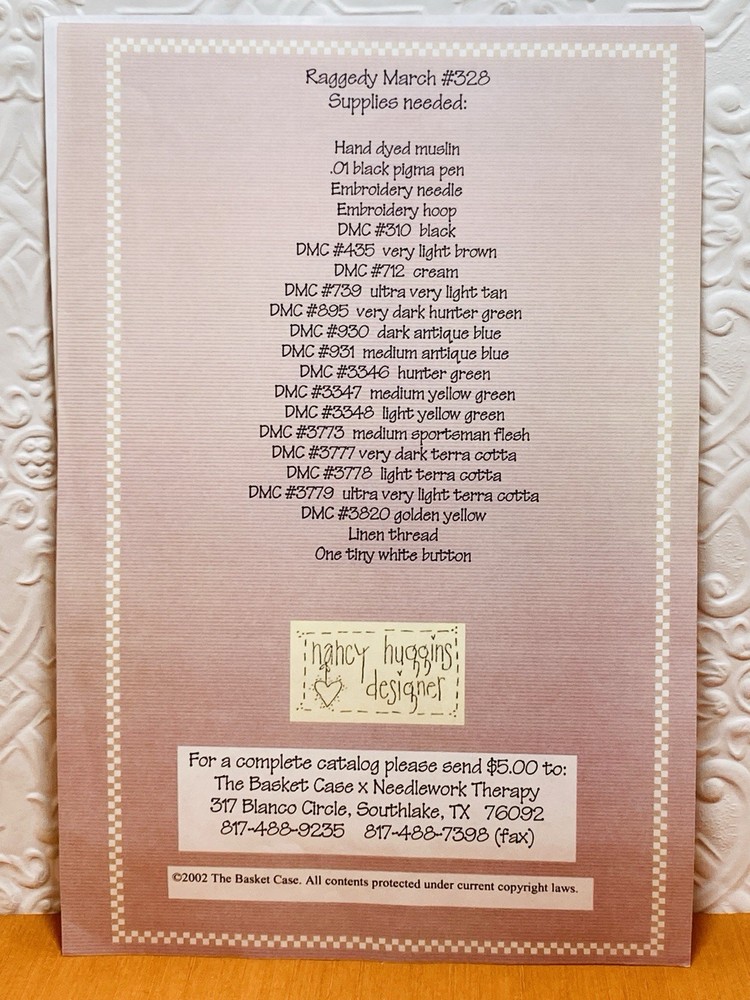 Raggedy March #328
Supplies needed:
Hand dyed muslin
.01 black pigma pen
Embroidery needle
Embroidery hoop
DMC #310 black
DMC #435 very light brown
DMC #712 cream
DMC #739 ultra very light tan
DMC #895 very dark hunter green
DMC #930 dark antique blue
DMC #931 medium antique blue
DMC #3346 hunter green
DMC #3347 medium yellow green
DMC #3348 light yellow green
DMC #3773 medium sportsman flesh
DMC #3777 very dark terra cotta
DMC #3778 light terra cotta
DMC #3779 ultra very light terra cotta
DMC #3820 golden yellow
Linen thread
One tiny white button
nancy huggins
designer
For a complete catalog please send $5.00 to:
The Basket Case x Needlework Therapy
317 Blanco Circle, Southlake, TX 76092
817-488-9235 817-488-7398 (fax)
©2002 The Basket Case. All contents protected under current copyright laws.